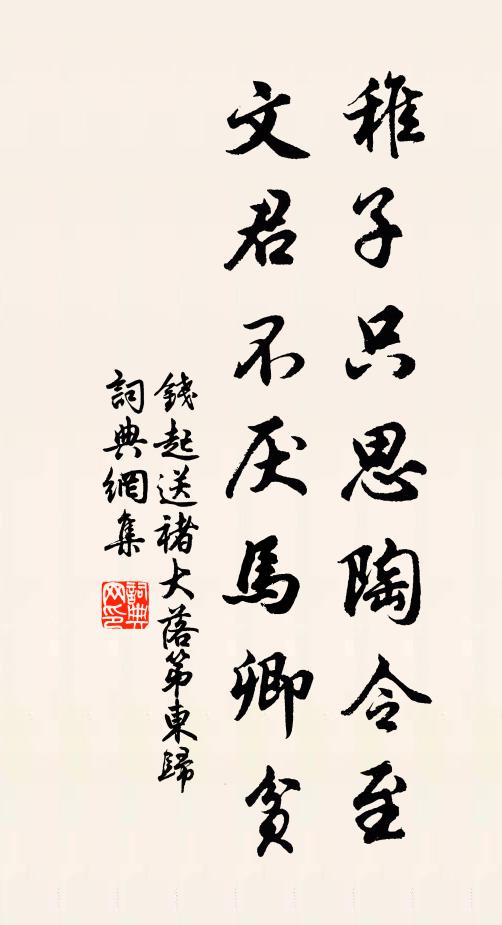 稚子只思陶令至
文君不厌馬卿貧
錢起送褚大落第東歸
詞典網集
詞典网印